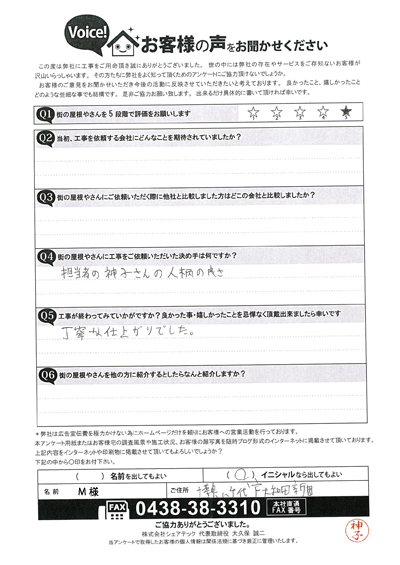 Voice! お客様の声をお聞かせください
この度は弊社に工事をご用命頂き誠にありがとうございました。世の中には弊社の存在やサービスをご存知ないお客様が
沢山いらっしゃいます。その方たちに弊社をよく知って頂くためのアンケートにご協力頂けないでしょうか。
お客様のご意見をお聞かせいただき今後の活動に反映させていただきたいと考えております。良かったこと、嬉しかったこと
どのような些細な事でも結構です。是非ご協力お願い致します。出来るだけ具体的に書いて頂ければ幸いです。
Q1 街の屋根やさんを5段階で評価をお願いします
Q2 当初、工事を依頼する会社にどんなことを期待されていましたか?
Q3 街の屋根やさんにご依頼いただく際に他社と比較しました方はどこの会社と比較しましたか?
Q4 街の屋根やさんに工事をご依頼いただいた決め手は何ですか?
担当者の神子さんの人柄の良さ
Q5 工事が終わってみていかがですか?良かった事・嬉しかったことを忌憚なく頂戴出来ましたら幸いです
丁寧な仕上がりでした。
Q6 街の屋根やさんを他の方に紹介するとしたらなんと紹介しますか?
*弊社は広告宣伝費を極力かけない為にホームページだけを頼りにお客様への営業活動を行っております。
本アンケート用紙またはお客様宅の調査風景や施工状況、お客様の顔写真を随時ブログ形式のインターネットに掲載させて頂いております。
上記内容をインターネットや印刷物に掲載させて頂いてもよろしいでしょうか?
下記の中から〇印をお付け下さい。
( ) 名前を出してもよい ( 〇 ) イニシャルなら出してもよい
名前 M様 ご住所
FAX 0438-38-3310 本社直通 FAX番号
ご協力ありがとうございました。
株式会社シェアテック 代表取締役 大久保 誠二
当アンケートで取得したお客様の個人情報は関係法規に基づき厳正に管理いたします。
神子